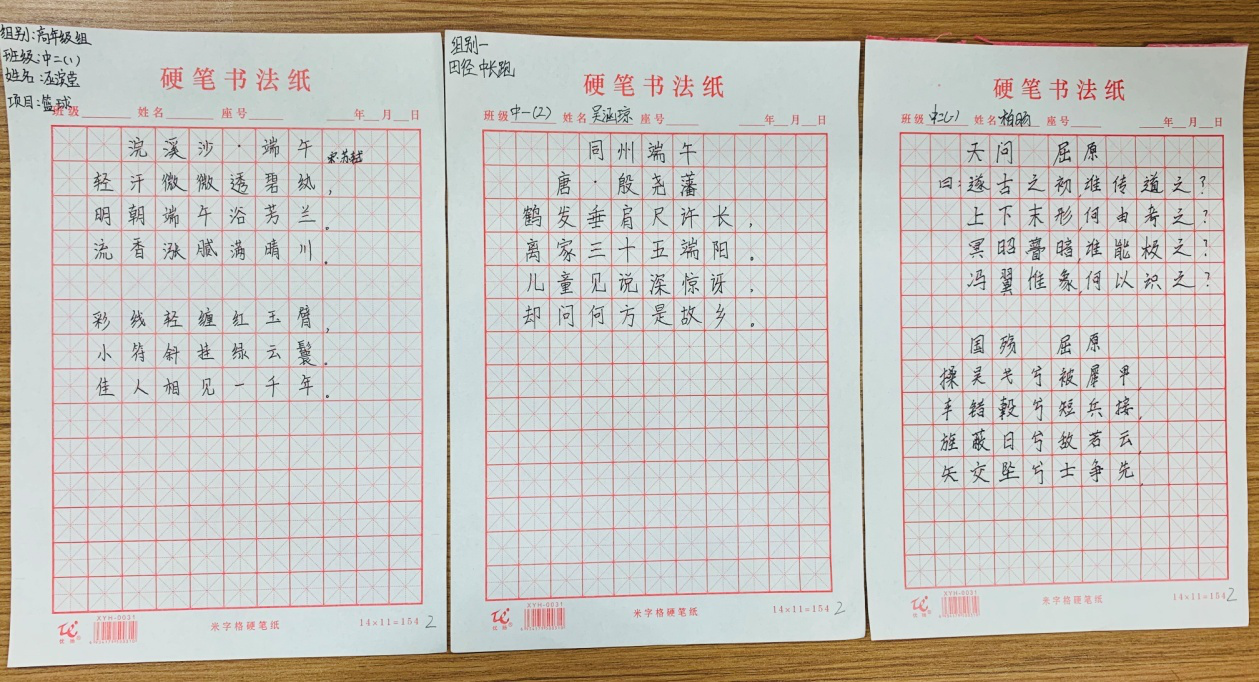 组别:高年级组
班级:中二(1)
姓名:汤滨莹
项目:篮球
硬笔书法纸
班级 姓名 座号 年 月 日
浣溪沙·端午
宋·苏轼
轻汗微微透碧纨,
明朝端午浴芳兰。
流香涨腻满晴川。
彩线轻缠红玉臂,
小符斜挂绿云鬟。
佳人相见一千年。
XYH-0031
米字格硬笔纸
14×11=154
2
组别一
田径 中长跑
硬笔书法纸
班级 中一(2) 姓名 吴涵琼 座号 年 月 日
同州端午
唐·殷尧藩
鹤发垂肩尺许长,
离家三十五端阳。
儿童见说深惊讶,
却问何方是故乡。
XYH-0031
米字格硬笔纸
14×11=154
2
硬笔书法纸
班级 中二(一) 姓名 柏旸 座号 年 月 日
天问 屈原
曰:遂古之初,谁传道之?
上下未形,何由考之?
冥昭瞢暗,谁能极之?
冯翼惟象,何以识之?
国殇 屈原
操吴戈兮被犀甲,
车错毂兮短兵接,
旌蔽日兮敌若云,
矢交坠兮士争先,
XYH-0031
米字格硬笔纸
14×11=154
2